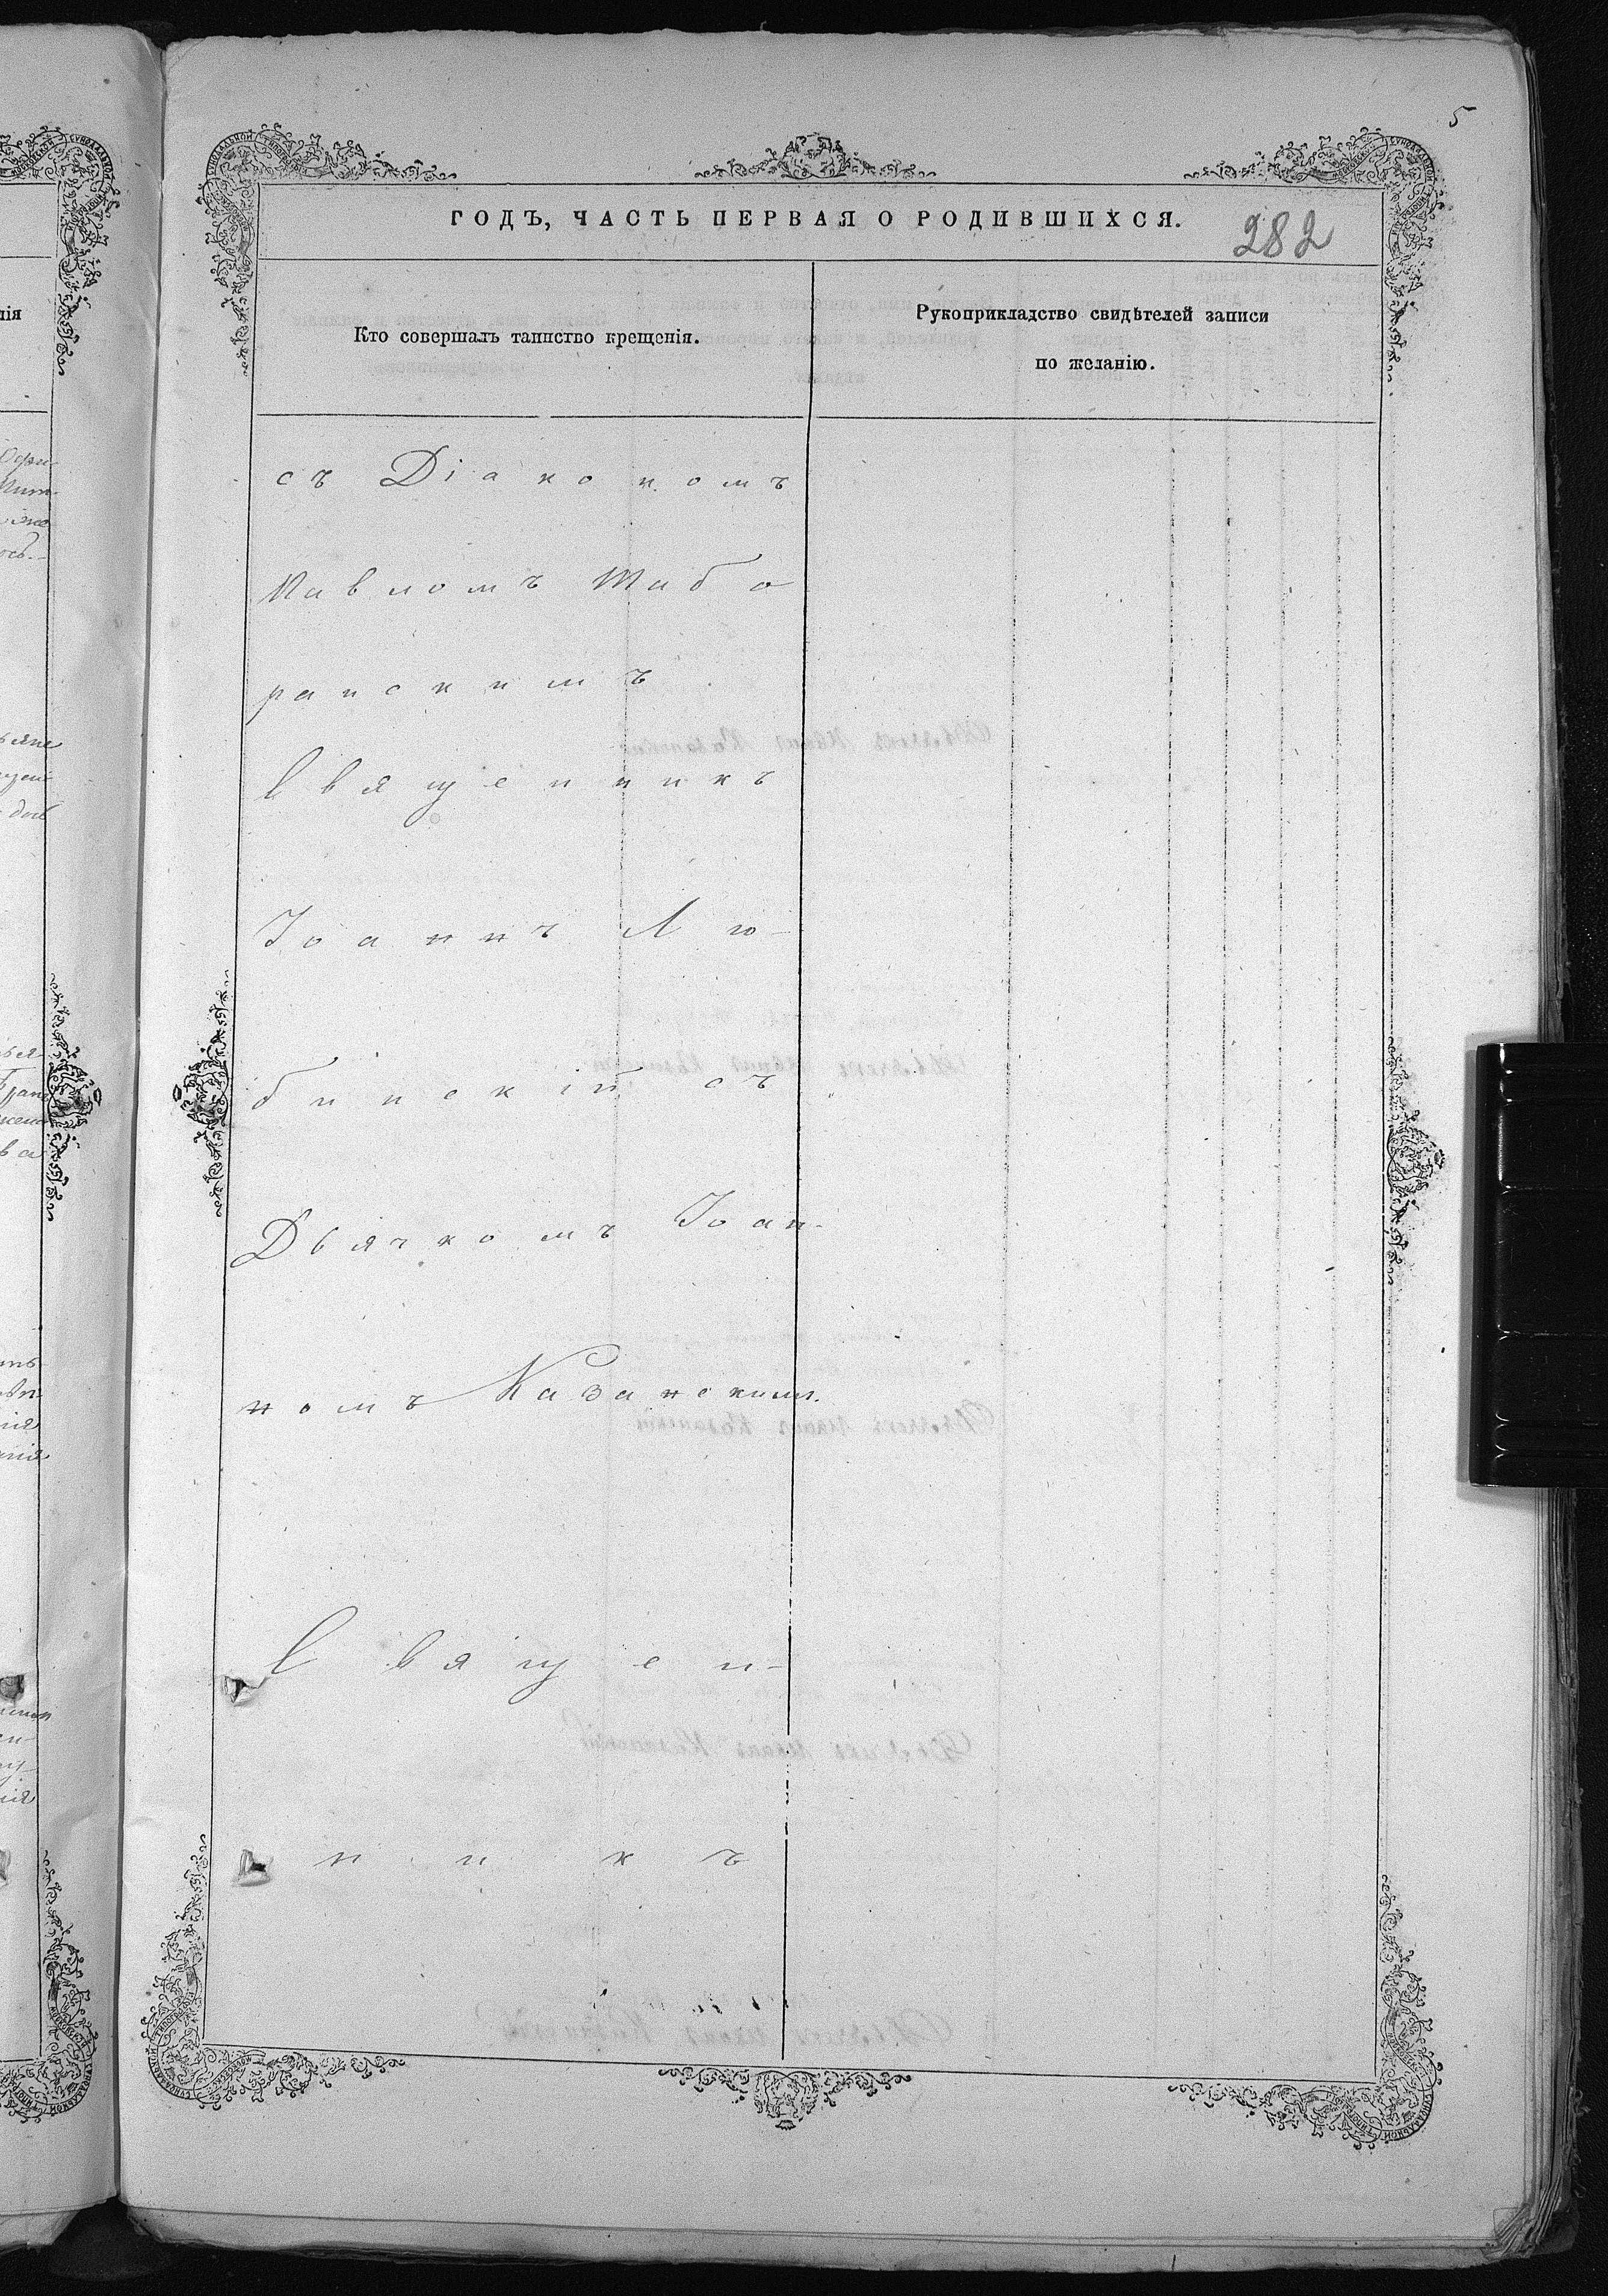 5
ГОДЪ, ЧАСТЬ ПЕРВАЯ О РОДИВШИХСЯ.
282
Кто совершалъ таинство крещенія.
Рукоприкладство свидѣтелей записи
по желанію.
съ Діакономъ
Павломъ Табо
ранскимъ
Священникъ
Іоаннъ Лю-
бинскій съ
Дьячкомъ Іоан-
номъ Казанскимъ.
Священ-
никъ